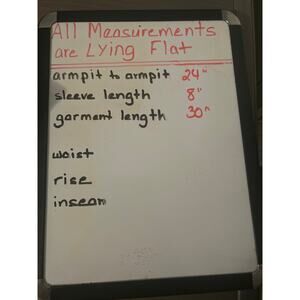 All Measurements
are Lying Flat
armpit to armpit 24"
sleeve length 8"
garment length 30"
waist
rise
inseam